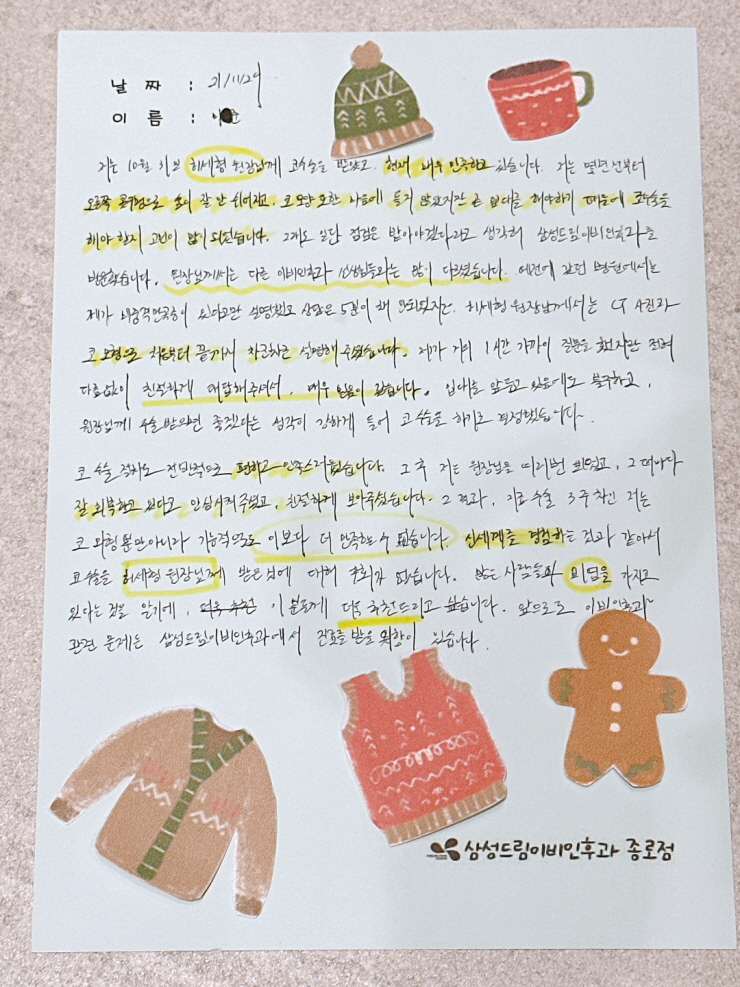 날 짜 : 21/11/24
이 름 :
저는 10월 31일 허세형 원장님께 코수술을 받았고, 현재 매우 만족하고 있습니다. 저는 몇년 전부터
오른쪽 콧구멍으로 숨이 잘 안 쉬어지고, 코 모양 또한 마음에 들지 않았지만 곧 입대를 해야하기 때문에 코수술을
해야 할지 고민이 많이 되었습니다. 그래도 일단 점검은 받아야겠다라고 생각해 삼성드림이비인후과를
방문했습니다. 원장님께서는 다른 이비인후과 선생님들과는 많이 다르셨습니다. 예전에 갔던 병원에서는
제가 비중격만곡증이 있다고만 설명했고 상담은 5분이 채 안되었지만. 허세형 원장님께서는 CT 사진과
코 모형으로 처음부터 끝까지 차근차근 설명해 주셨습니다. 제가 거의 1시간 가까이 질문을 했지만 전혀
다름없이 친절하게 대답해주셔서, 매우 믿음이 갔습니다. 입대를 앞두고 있음에도 불구하고,
원장님께 수술 받으면 좋겠다는 생각이 강하게 들어 코 수술을 하기로 결정했습니다.
코 수술 절차도 전반적으로 편하고 만족스러웠습니다. 그 후 저는 원장님을 여러번 뵈었고, 그 때마다
잘 회복하고 있다고 안심시켜 주셨고, 친절하게 보아주셨습니다. 그 결과, 지금 수술 3주 차인 저는
코 외형 뿐만아니라 기능적으로도 이보다 더 만족할 수 없습니다. 신세계를 경험하는 것과 같아서
코 수술을 허세형 원장님께 받은 것에 대해 후회가 없습니다. 많은 사람들이 비염을 가지고
있다는 것을 알기에, 더욱 추천 이 분들께 더욱 추천드리고 싶습니다. 앞으로도 이비인후과
관련 문제는 삼성드림이비인후과에서 진료를 받을 의향이 있습니다.
삼성드림이비인후과 종로점